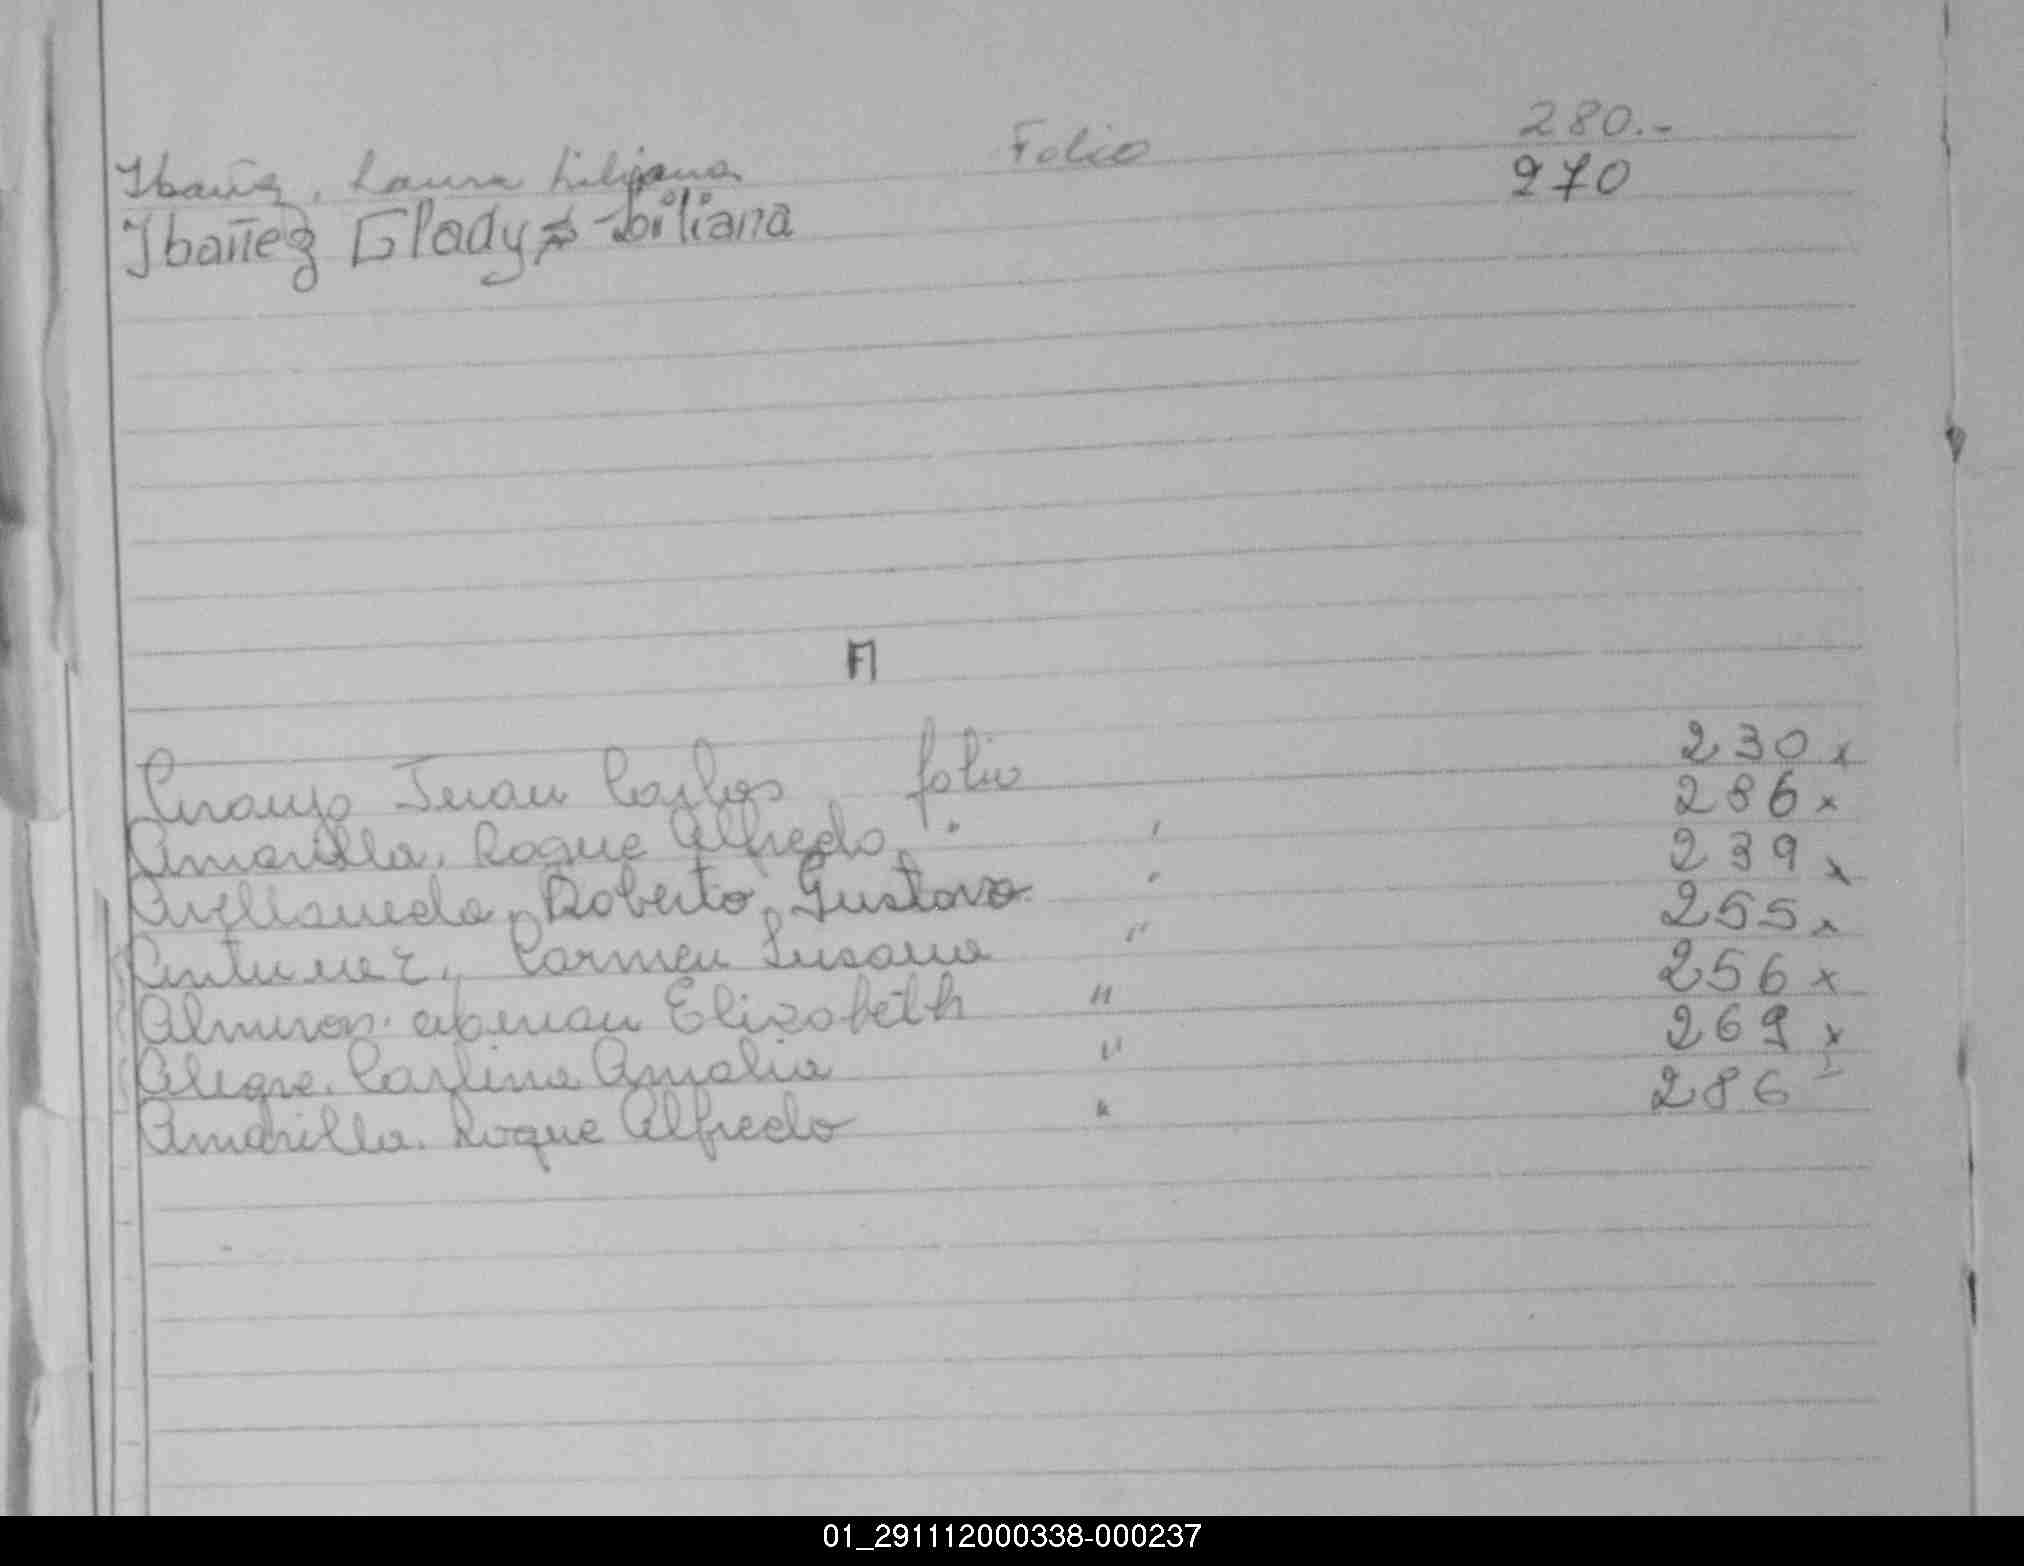 Ibañez, Laura Liliana Folio 280.-
Ibañez Gladys Liliana 270
A
Araujo Juan Carlos folio 230 x
Amarilla, Roque Alfredo " " 286 x
Avellaneda, Roberto, Gustavo " 239 x
Antunez, Carmen Susana " 255 x
Almiron Elizabeth " 256 x
Alegre. Carlina Amalia " 269 x
Amarilla. Roque Alfredo " 286
01_291112000338-000237